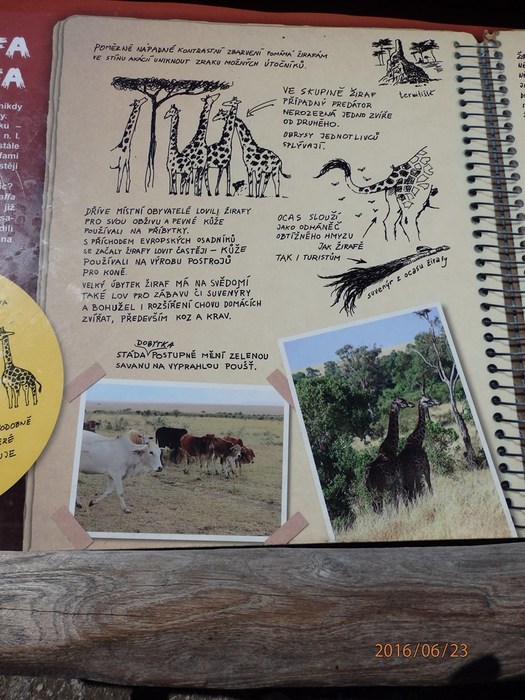 FA
TA
nikdy
y.
ku –
n. l.
stále
fami
stěji
c?
affa
již
sa-
dní
na
VA
ODOBNĚ
ERÉ
UJE
POMĚRNĚ NÁPADNÉ KONTRASTNÍ ZBARVENÍ POMÁHÁ ŽIRAFÁM
VE STÍNU AKÁCIÍ UNIKNOUT ZRAKU MOŽNÝCH ÚTOČNÍKŮ.
termitiště
VE SKUPINĚ ŽIRAF
PŘÍPADNÝ PREDÁTOR
NEROZEZNÁ JEDNO ZVÍŘE
OD DRUHÉHO.
OBRYSY JEDNOTLIVCŮ
SPLÝVAJÍ.
DŘÍVE MÍSTNÍ OBYVATELÉ LOVILI ŽIRAFY
PRO SVOU OBŽIVU A PEVNÉ KŮŽE
POUŽÍVALI NA PŘÍBYTKY.
S PŘÍCHODEM EVROPSKÝCH OSADNÍKŮ
SE ZAČALY ŽIRAFY LOVIT ČASTĚJI – KŮŽE
POUŽÍVALI NA VÝROBU POSTROJŮ
PRO KONĚ.
VELKÝ ÚBYTEK ŽIRAF MÁ NA SVĚDOMÍ
TAKÉ LOV PRO ZÁBAVU ČI SUVENÝRY
A BOHUŽEL I ROZŠÍŘENÍ CHOVU DOMÁCÍCH
ZVÍŘAT, PŘEDEVŠÍM KOZ A KRAV.
OCAS SLOUŽÍ
JAKO ODHÁNĚČ
OBTÍŽNÉHO HMYZU
JAK ŽIRAFĚ
TAK I TURISTŮM
suvenýr z ocasu žirafy
DOBYTKA
STÁDA POSTUPNĚ MĚNÍ ZELENOU
SAVANU NA VYPRAHLOU POUŠŤ.
2016/06/23